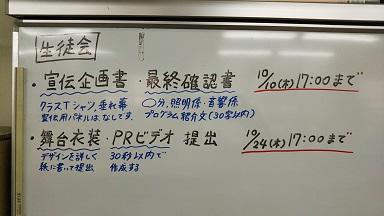 生徒会
・宣伝企画書・最終確認書 10/10(木)17:00まで
クラスTシャツ、垂れ幕 〇分、照明係・音響係
宣伝用パネルは、なしです。 プログラム紹介文(30字以内)
・舞台衣装・PRビデオ 提出 10/24(木)17:00まで
デザインを詳しく 30秒以内で
紙に書いて提出 作成する